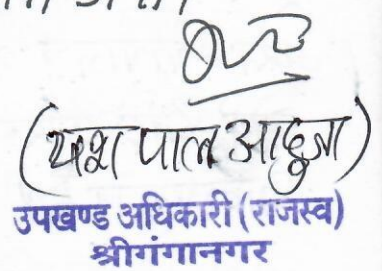 (यश पाल आहुजा)
उपखण्ड अधिकारी (राजस्व)
श्रीगंगानगर